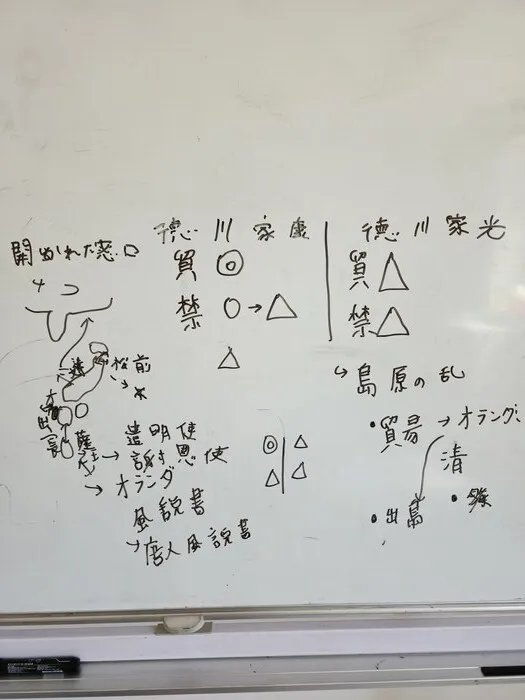 開かれた窓口
松前
対
出
長
薩
→遣明使
謝恩使
→オランダ
風説書
→唐人風説書
徳川家康
貿◎
禁○→△
△
◎|△
△|△
徳川家光
貿△
禁△
↳島原の乱
・貿易→オランダ
清
・出島